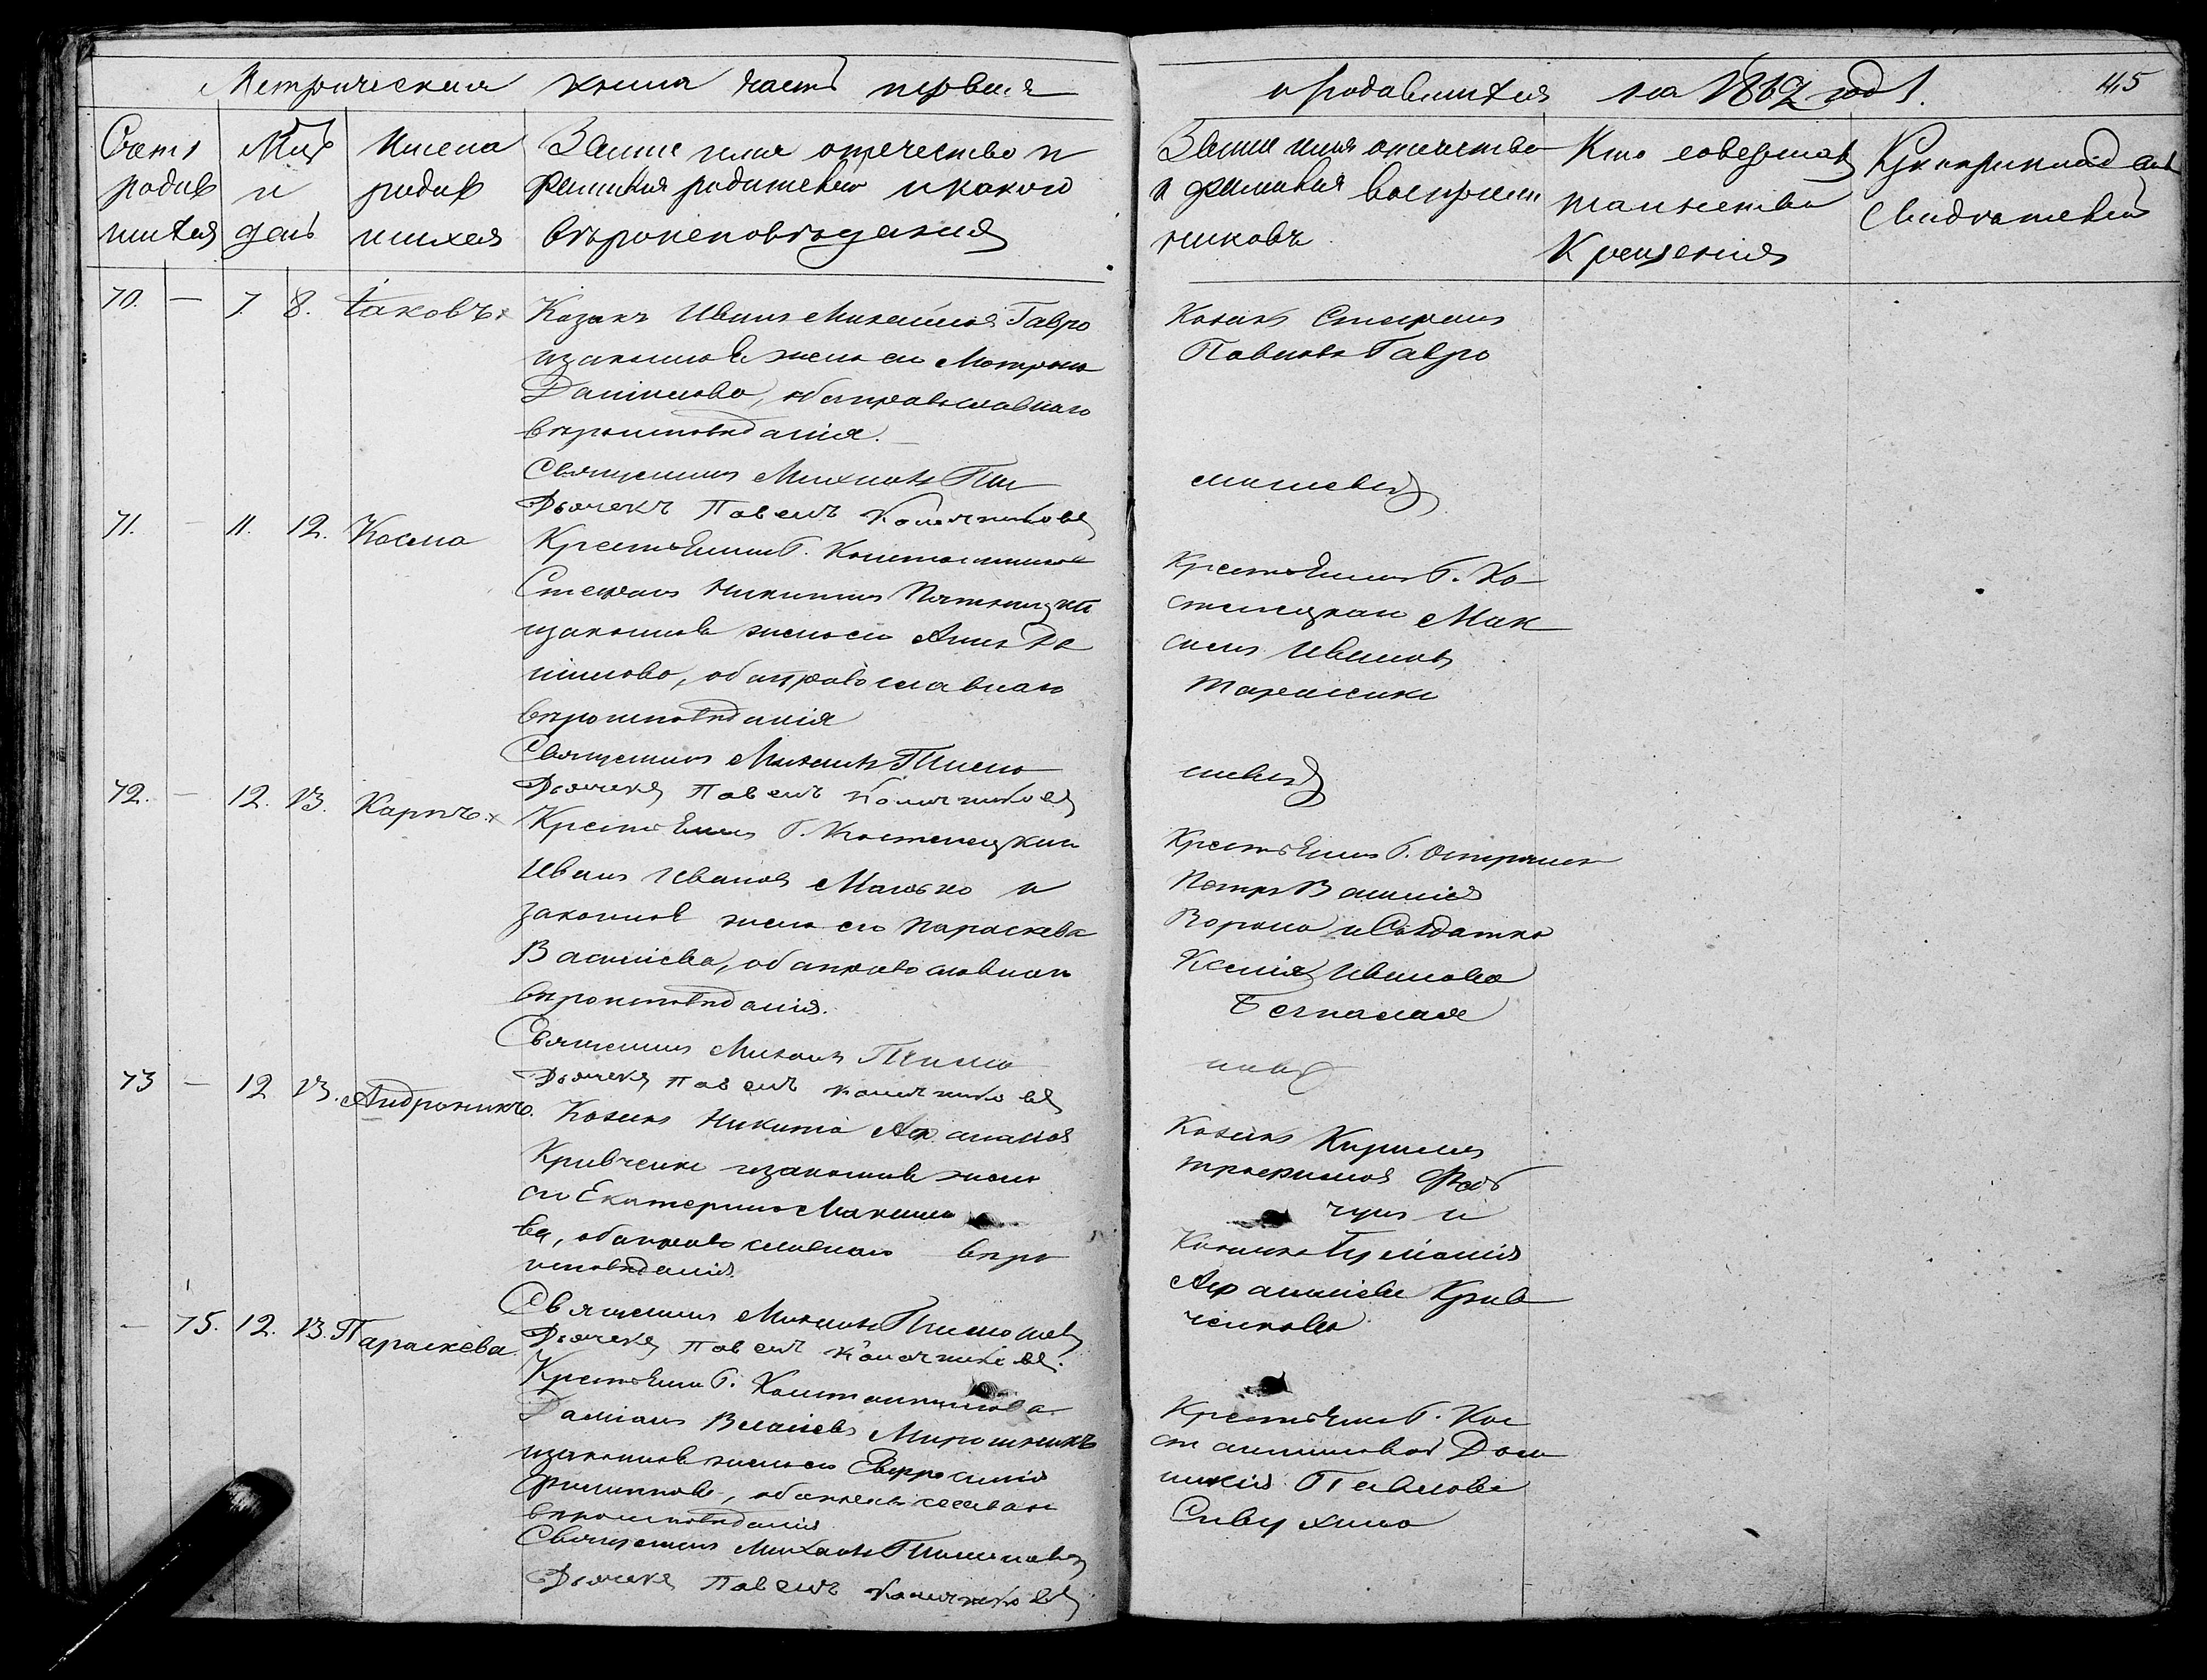 Метрическая книга часть первая
о родившихся на 1867 годъ.
45
Счетъ родив шихся
Мцъ и день
Имена родив шихся
Званіе имя отечество и
фамилія родителей и какого
вѣроисповѣданія
Званіе имя отчество
и фамилія воспріем
никовъ
Кто совершалъ
таинство
Крещенія
Рукоприклад ство
Свидѣтелей
70. — 7. 8. Іаковъ
Козакъ Иванъ Михайловъ Гавро
и законная жена его Матрона
Даніилова, оба православнаго
вѣроисповѣданія.
Козакъ Стефанъ
Павловъ Гавро
Священникъ Михаилъ
Дьячекъ Павелъ
71. — 11. 12. Косма
Крестьянинъ Г. Константинова
Стефанъ Никитинъ Пятницкій
и законная жена его Анна Да
ніилова, оба православнаго
вѣроисповѣданія
Крестьянинъ Г. Ко
стенецкаго Мак
симъ Ивановъ
Тарасенко
Священникъ Михаилъ
Дьячекъ Павелъ
72. — 12. 13. Карпъ
Крестьянинъ Г. Костенецкаго
Иванъ Ивановъ Малько и
законная жена его Параскева
Василіева, оба православнаго
вѣроисповѣданія.
Крестьянинъ Г.
Петръ Василіевъ
Ворона и Солдатка
Ксенія Иванова
Священникъ Михаилъ
Дьячекъ Павелъ
73 — 12 13. Андроникъ.
Козакъ Никита Афанасіевъ
Кривченко и законная жена
его Екатерина Максимо
ва, оба православнаго вѣро
исповѣданія.
Козакъ Кириллъ
Трофимовъ
и
Козачка
Афанасіева Крив
ченкова
Священникъ Михаилъ
Дьячекъ Павелъ
— 75. 12. 13. Параскева
Крестьянинъ Г. Константинова
Даміанъ Власіевъ Мирошникъ
и законная жена его Евфросинія
Филиппова, оба православнаго
вѣроисповѣданія
Крестьянка Г. Кон
стантиновой Дом
никія Павлова
Сивухина
Священникъ Михаилъ
Дьячекъ Павелъ